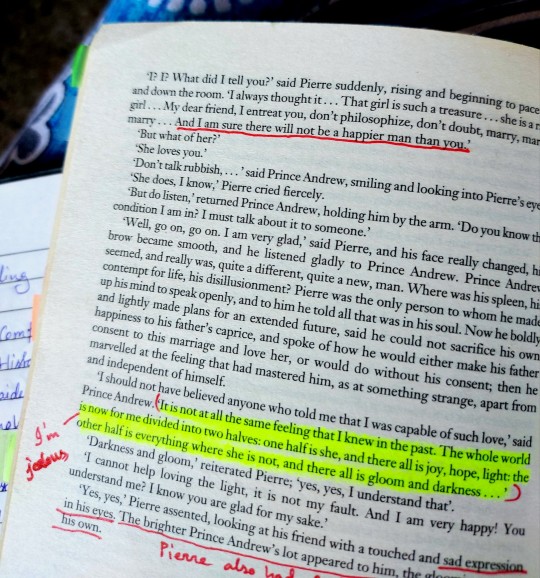 'I? I? What did I tell you?' said Pierre suddenly, rising and beginning to pace
and down the room. 'I always thought it . . . That girl is such a treasure . . . she is a
girl . . . My dear friend, I entreat you, don't philosophize, don't doubt, marry, mar
marry . . . And I am sure there will not be a happier man than you.'
'But what of her?'
'She loves you.'
'Don't talk rubbish, . . . ' said Prince Andrew, smiling and looking into Pierre's eye
'She does, I know,' Pierre cried fiercely.
'But do listen,' returned Prince Andrew, holding him by the arm. 'Do you know th
condition I am in? I must talk about it to someone.'
'Well, go on, go on. I am very glad,' said Pierre, and his face really changed, hi
brow became smooth, and he listened gladly to Prince Andrew. Prince Andrew
seemed, and really was, quite a different, quite a new, man. Where was his spleen, hi
contempt for life, his disillusionment? Pierre was the only person to whom he made
up his mind to speak openly, and to him he told all that was in his soul. Now he boldly
and lightly made plans for an extended future, said he could not sacrifice his own
happiness to his father's caprice, and spoke of how he would either make his father
consent to this marriage and love her, or would do without his consent; then he
marvelled at the feeling that had mastered him, as at something strange, apart from
and independent of himself.
'I should not have believed anyone who told me that I was capable of such love,' said
Prince Andrew. 'It is not at all the same feeling that I knew in the past. The whole world
is now for me divided into two halves: one half is she, and there all is joy, hope, light: the
other half is everything where she is not, and there all is gloom and darkness . . . '
I'm
jealous
'Darkness and gloom,' reiterated Pierre; 'yes, yes, I understand that'.
'I cannot help loving the light, it is not my fault. And I am very happy! You
understand me? I know you are glad for my sake.'
'Yes, yes,' Pierre assented, looking at his friend with a touched and sad expression
in his eyes. The brighter Prince Andrew's lot appeared to him, the
his own.
Pierre also had